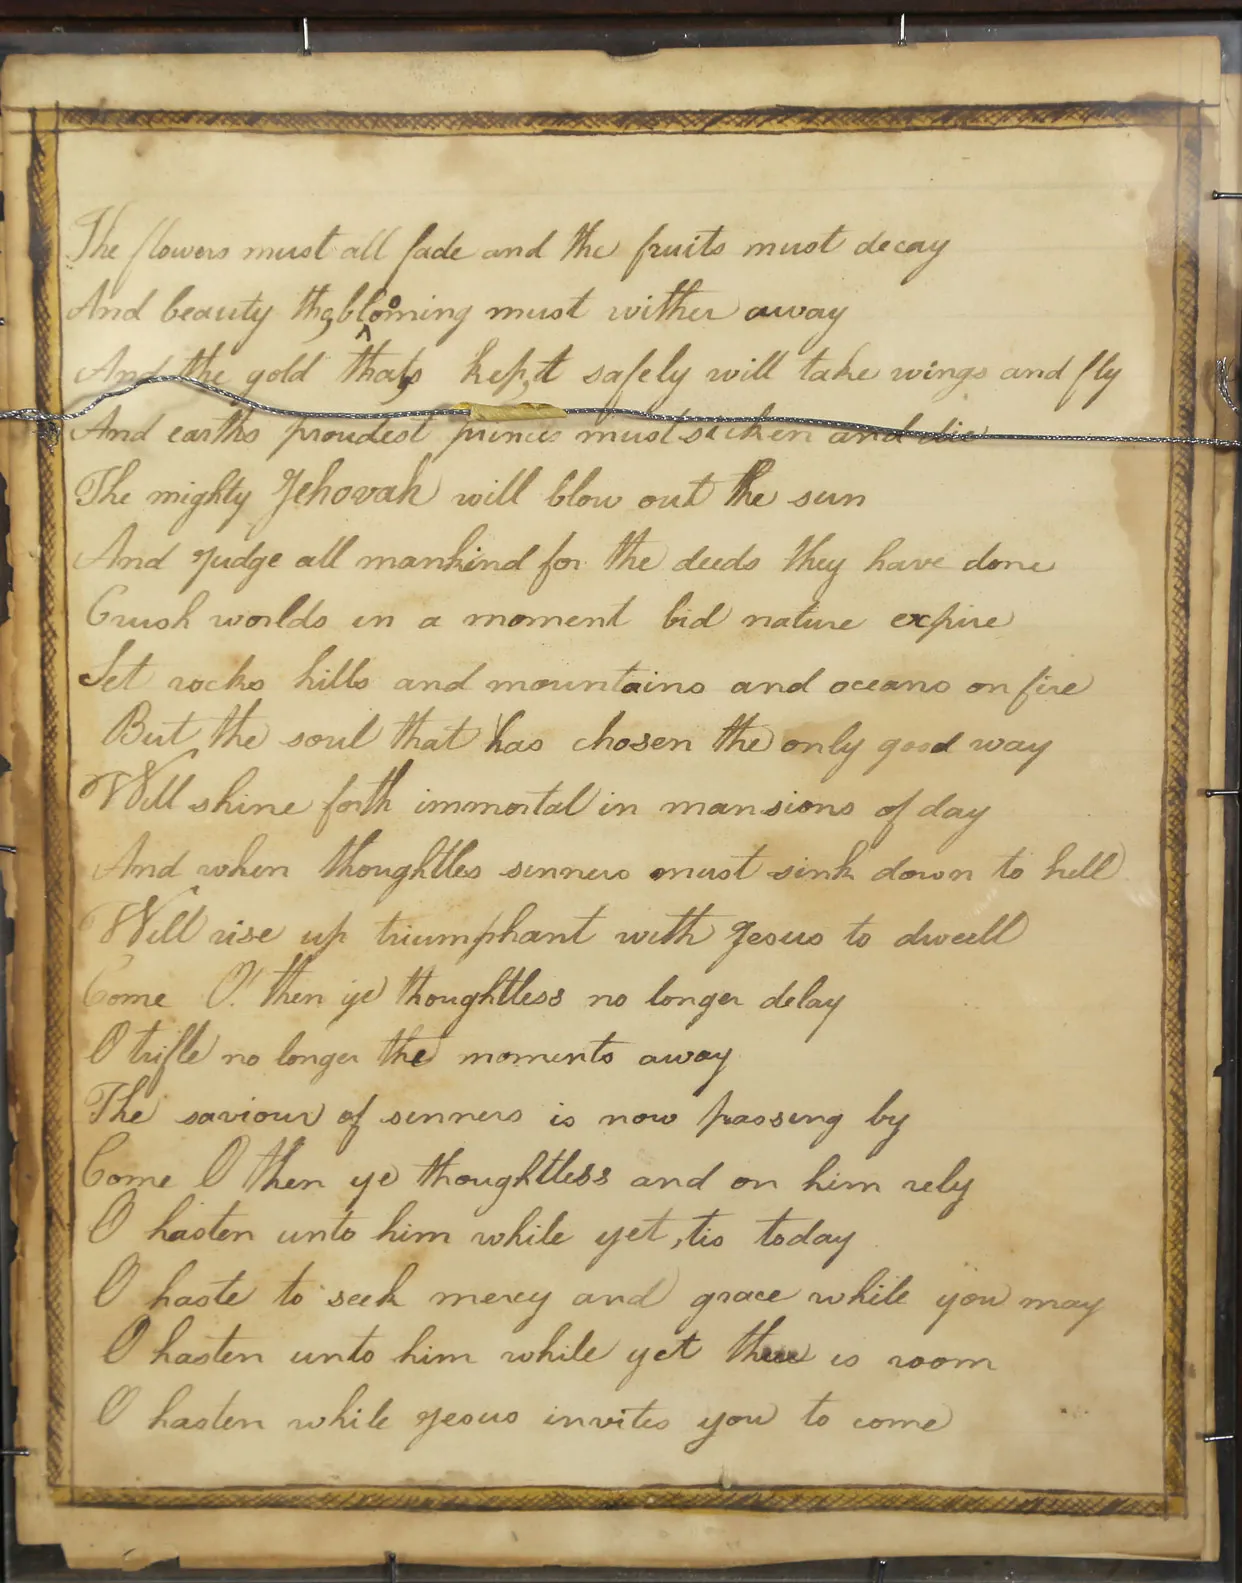 The flowers must all fade and the fruits must decay
And beauty tho, blooming must wither away
And the gold that,s kep,t safely will take wings and fly
And earths proudest princes must sicken and die
The mighty Jehovah will blow out the sun
And Judge all mankind for the deeds they have done
Crush worlds in a moment bid nature expire
Set rocks hills and mountains and oceans on fire
But the soul that has chosen the only good way
Will shine forth immortal in mansions of day
And when thoughtles sinners must sink down to hell
Will rise up triumphant with Jesus to dwell
Come O! then ye thoughtless no longer delay
O trifle no longer the moments away
The saviour of sinners is now passing by
Come O then ye thoughtless and on him rely
O hasten unto him while yet ,tis today
O haste to seek mercy and grace while you may
O hasten unto him while yet there is room
O hasten while Jesus invites you to come